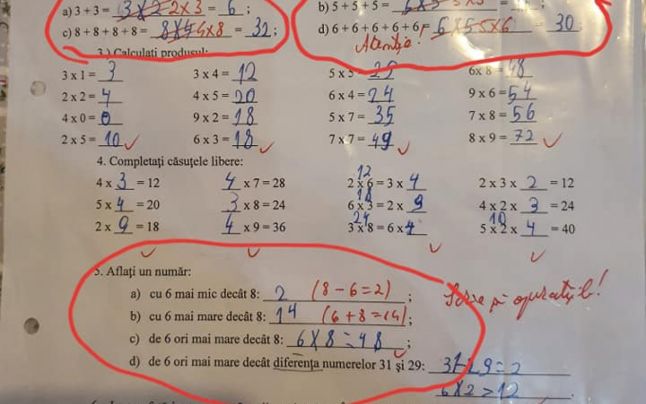 a) 3 + 3 = 3 x 2 2 x 3 = 6 ;
b) 5 + 5 + 5 =
c) 8 + 8 + 8 + 8 = 8 x 4 4 x 8 = 32 ;
d) 6 + 6 + 6 + 6 + 6 = 6 x 5 5 x 6 = 30 ;
Atenție!
3.) Calculați produsul:
3 x 1 = 3 3 x 4 = 12 5 x 5 = 25 6 x 8 = 48
2 x 2 = 4 4 x 5 = 20 6 x 4 = 24 9 x 6 = 54
4 x 0 = 0 9 x 2 = 18 5 x 7 = 35 7 x 8 = 56
2 x 5 = 10 6 x 3 = 18 7 x 7 = 49 8 x 9 = 72
4. Completați căsuțele libere:
12
4 x 3 = 12 4 x 7 = 28 2 x 6 = 3 x 4 2 x 3 x 2 = 12
18
5 x 4 = 20 3 x 8 = 24 6 x 3 = 2 x 9 4 x 2 x 3 = 24
24 10
2 x 9 = 18 4 x 9 = 36 3 x 8 = 6 x 4 5 x 2 x 4 = 40
5. Aflați un număr:
a) cu 6 mai mic decât 8: 2 (8 - 6 = 2) ;
Scrie și operațiile!
b) cu 6 mai mare decât 8: 14 (6 + 8 = 14) ;
c) de 6 ori mai mare decât 8: 6 x 8 = 48 ;
d) de 6 ori mai mare decât diferența numerelor 31 și 29: 31 - 29 = 2
6 x 2 = 12